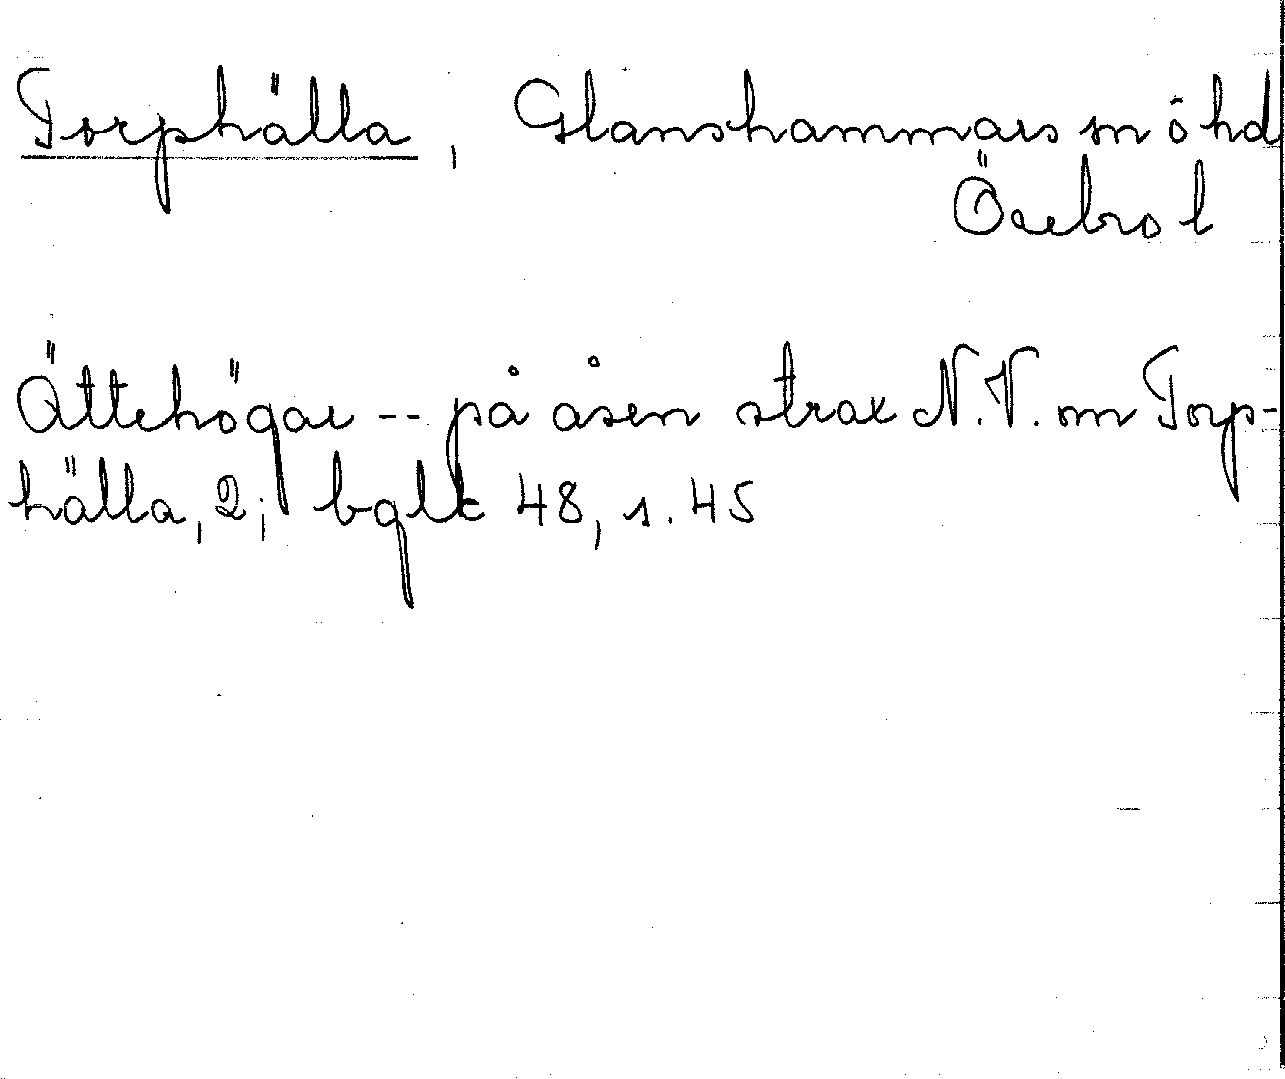 Torphälla, Glanshammars sn o hd
Örebro l
Ättehögar -- på åsen strax N.V. om Torp-
hälla, 2; bglk 48, s. 45